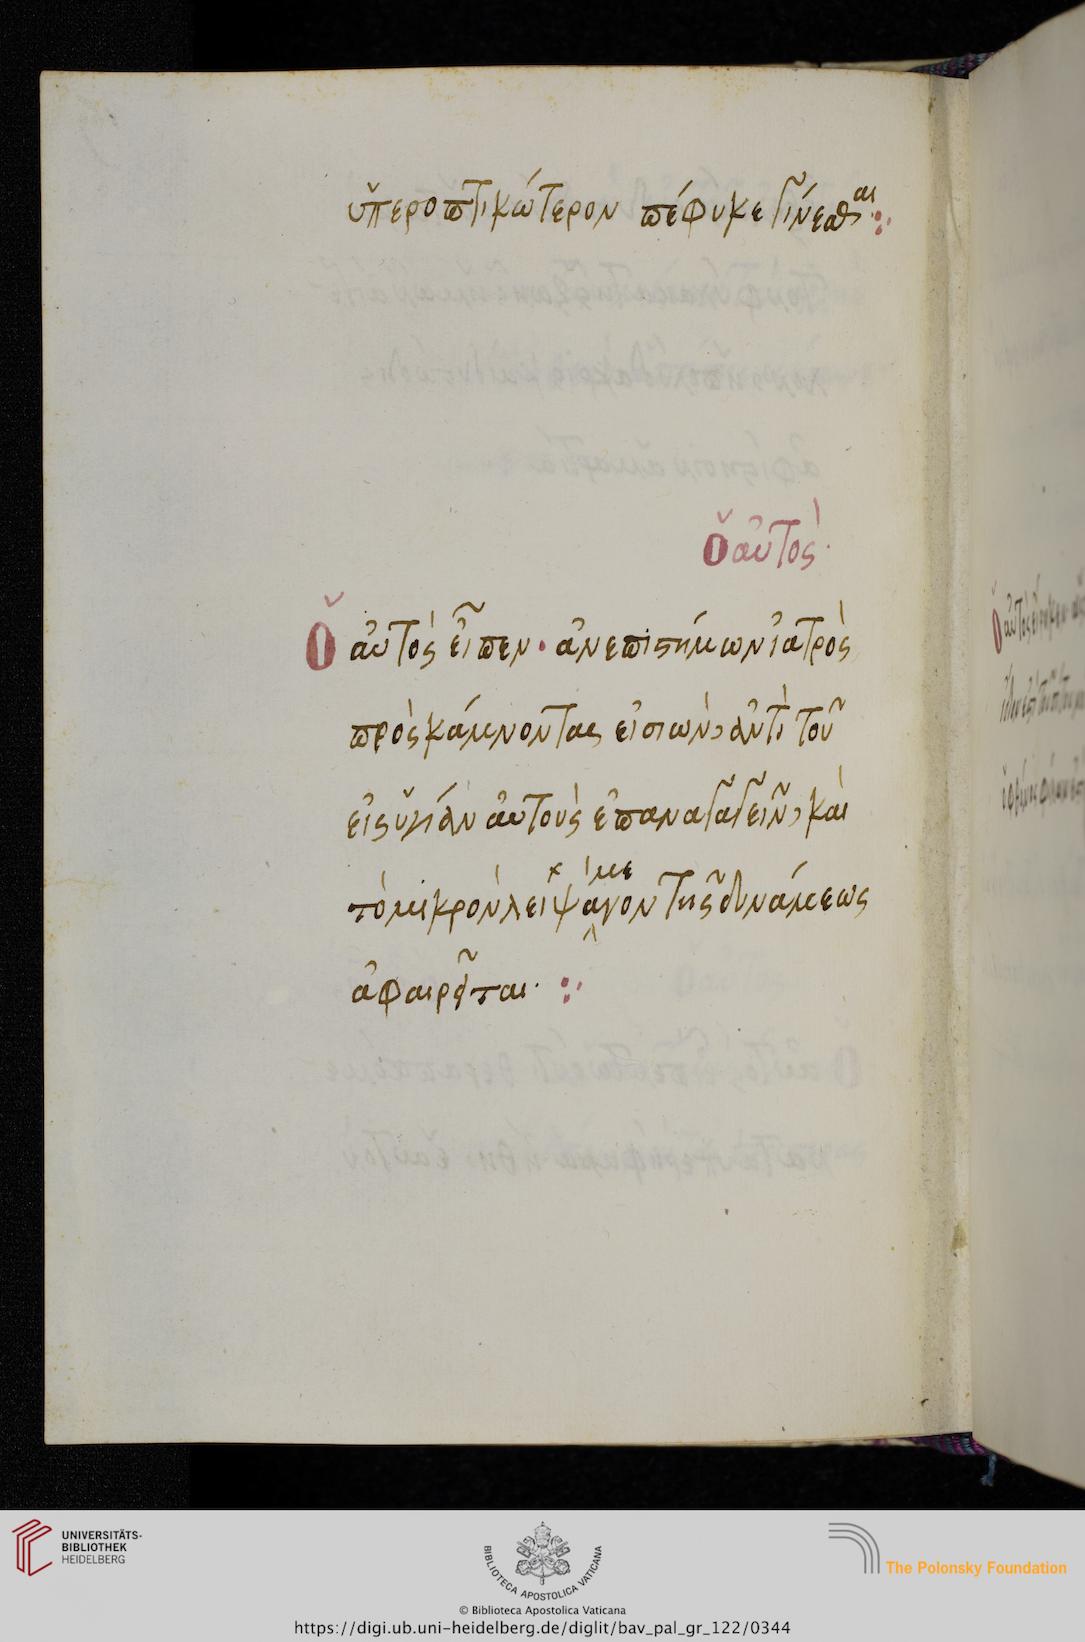 ὑπεροπτικώτερον πέφυκε γίνεσθαι
ὁ αὐτὸς
Ὁ αὐτὸς εἶπεν· ἀνεπιστήμων ἰατρὸς
πρὸς κάμνοντας εἰσιὼν, ἀντὶ τοῦ
εἰς ὑγίαν αὐτοὺς ἐπαναγαγεῖν, καὶ
τὸ μικρὸν λείψαμενον τῆς δυνάμεως
ἀφαιρῆται
UNIVERSITÄTS-
BIBLIOTHEK
HEIDELBERG
BIBLIOTECA APOSTOLICA VATICANA
The Polonsky Foundation
© Biblioteca Apostolica Vaticana
https://digi.ub.uni-heidelberg.de/diglit/bav_pal_gr_122/0344